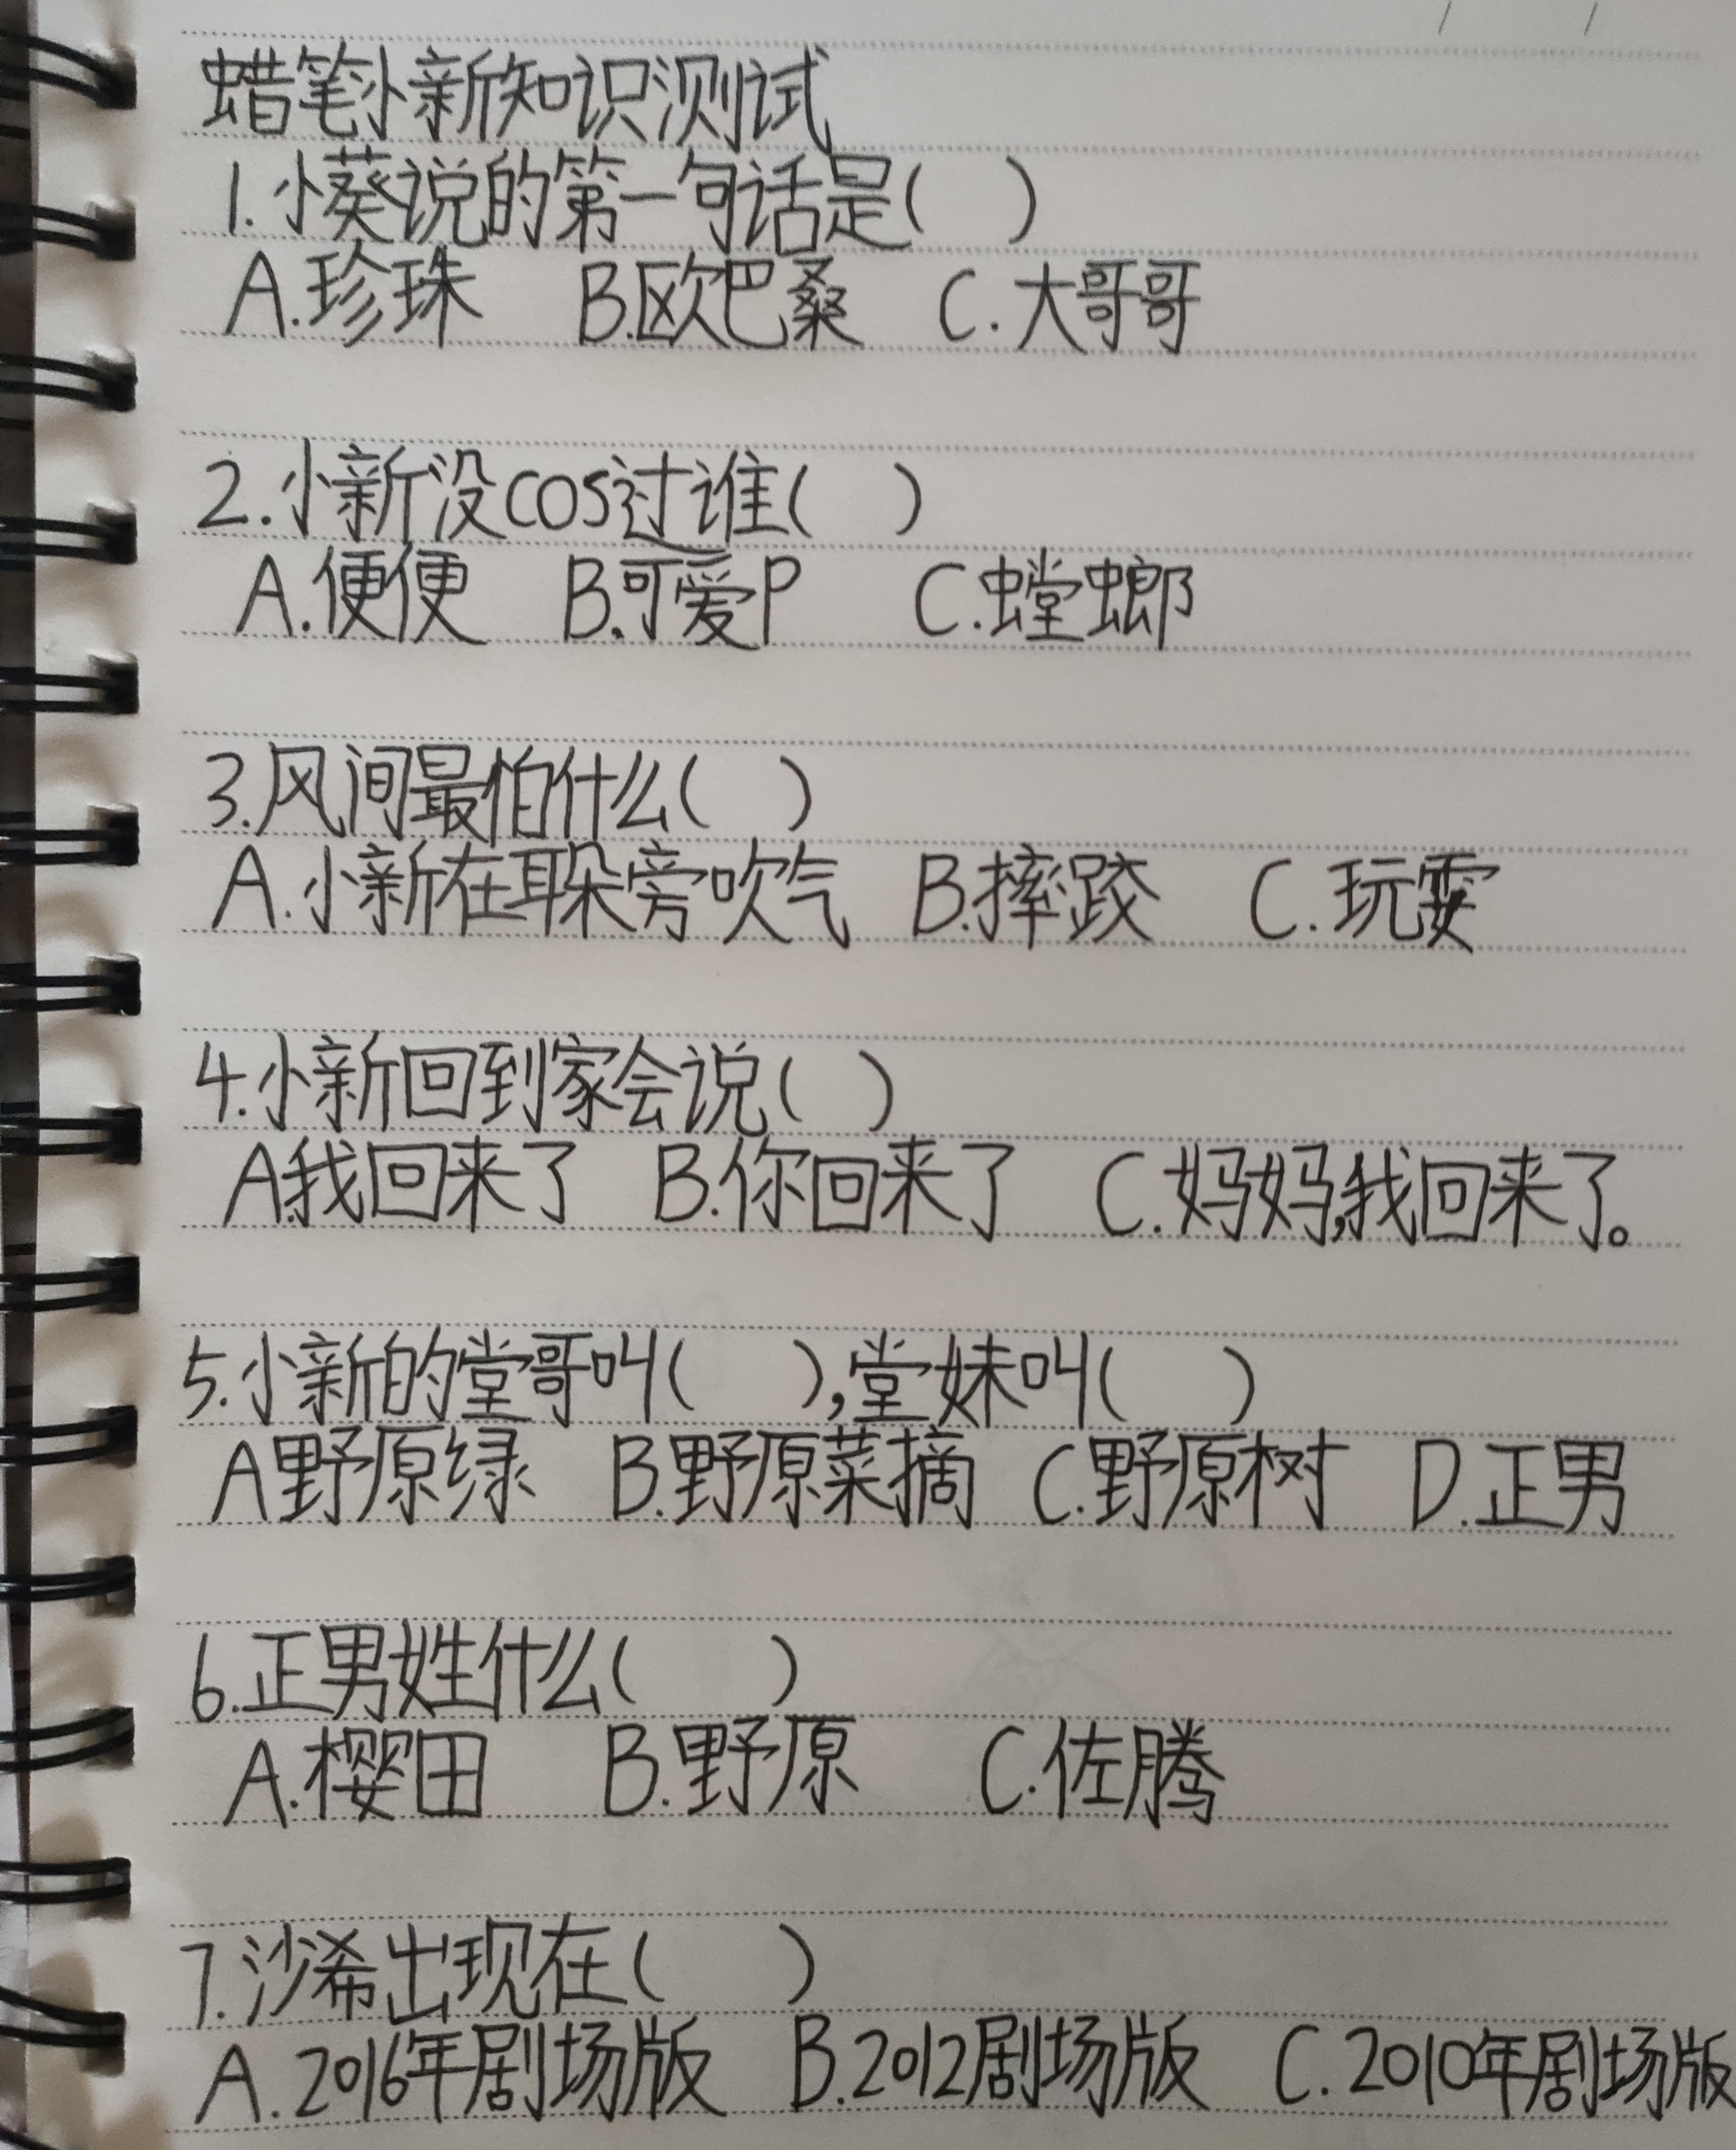 蜡笔小新知识测试
1.小葵说的第一句话是( )
A.珍珠 B.欧巴桑 C.大哥哥
2.小新没cos过谁( )
A.便便 B.可爱P C.螳螂
3.风间最怕什么( )
A.小新在耳朵旁吹气 B.摔跤 C.玩耍
4.小新回到家会说( )
A.我回来了 B.你回来了 C.妈妈,我回来了。
5.小新的堂哥叫( ),堂妹叫( )
A野原绿 B.野原菜摘 C.野原树 D.正男
6.正男姓什么( )
A.樱田 B.野原 C.佐腾
7.沙希出现在( )
A.2016年剧场版 B.2012剧场版 C.2010年剧场版